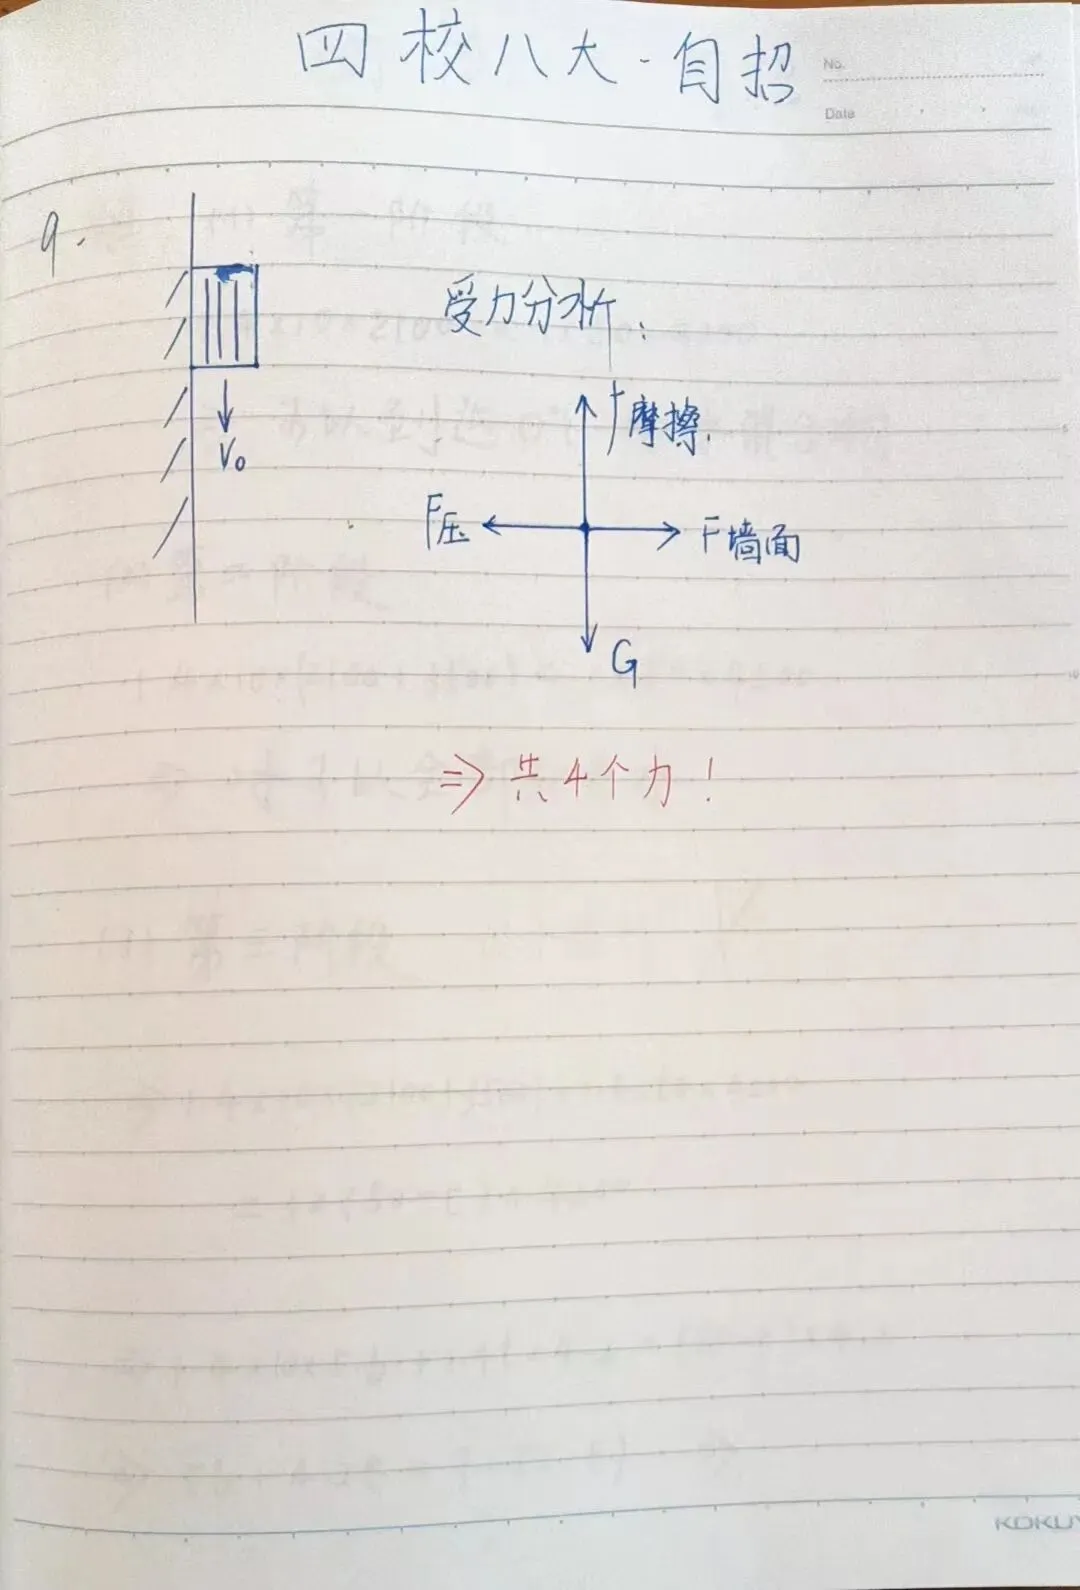 四校八大·自招
No.
Date
9.
受力分析:
f摩擦
V₀
F压
F墙面
G
⇒ 共4个力!
KOKUY